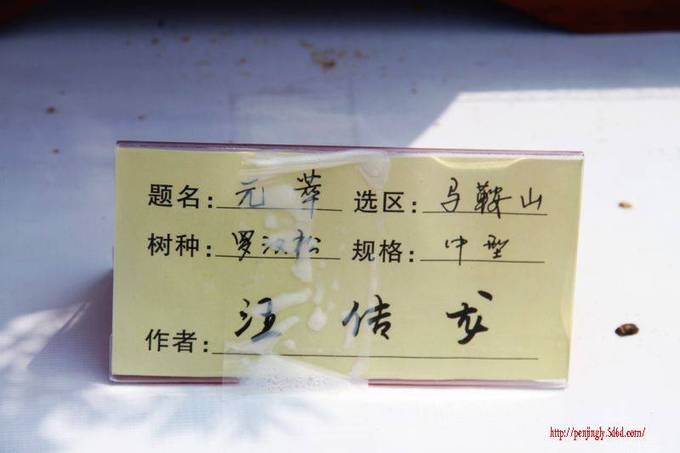 题名：元萃 选区：马鞍山
树种：罗汉松 规格：中型
作者：汪传龙
http://penjingly.5d6d.com/